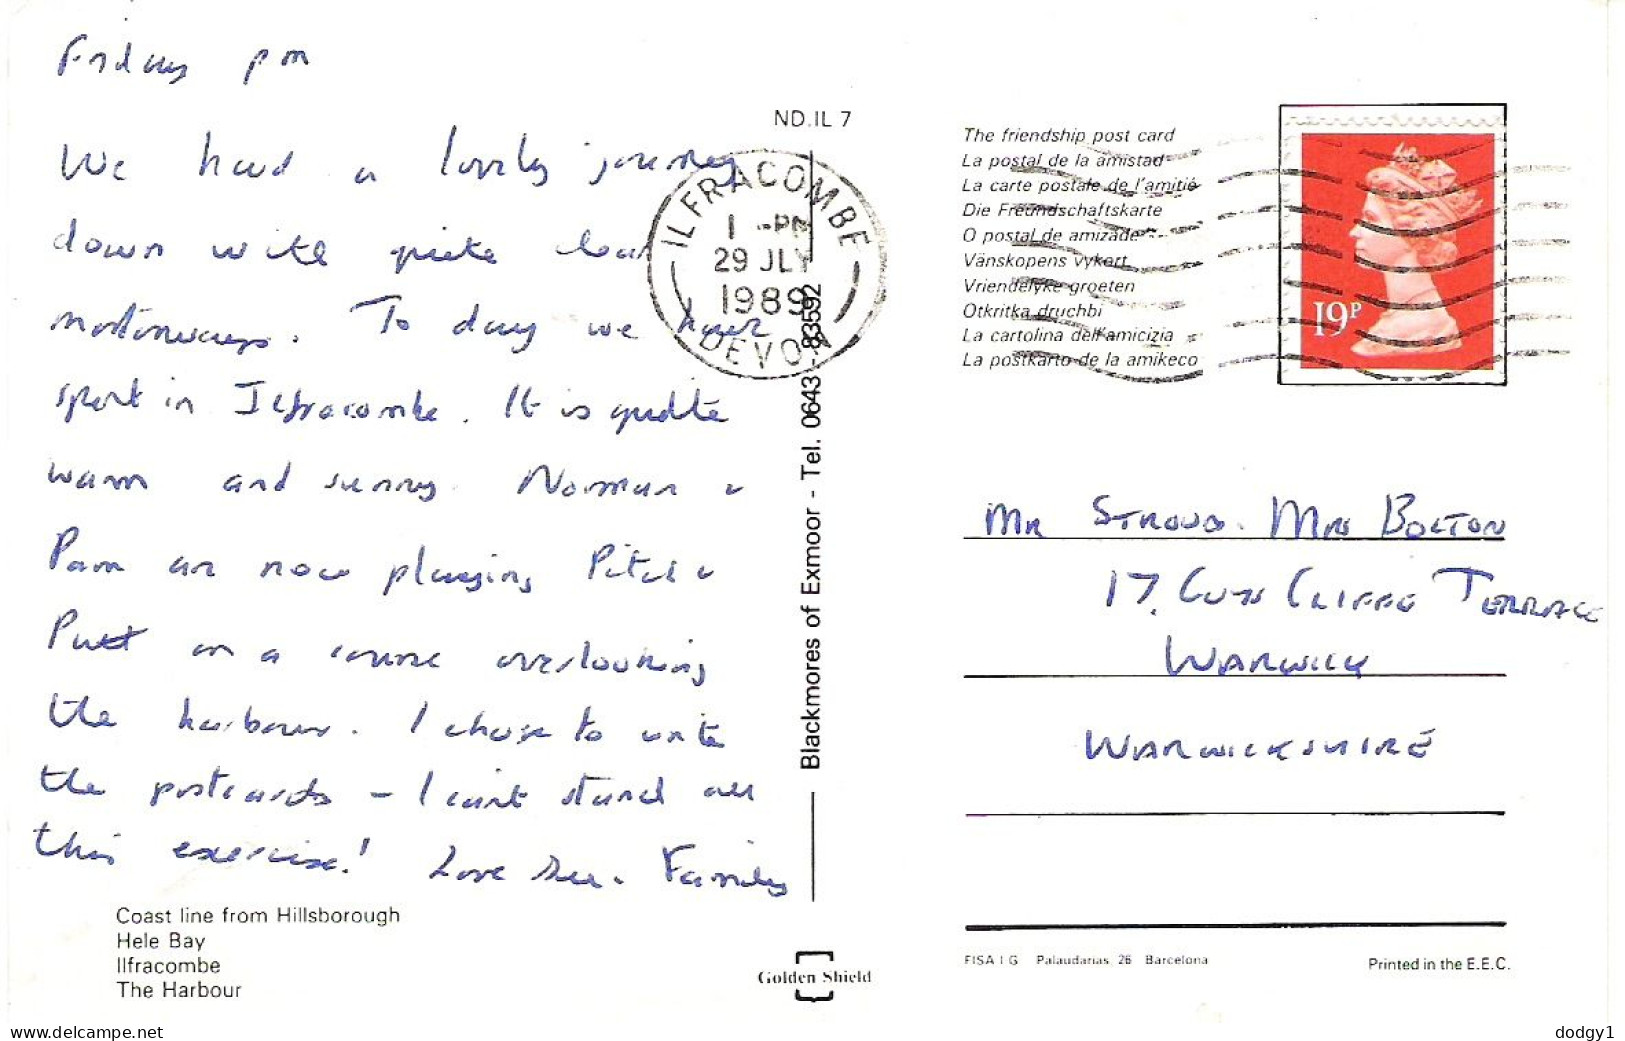 Friday pm
We had a lovely journey
down with quite clear
motorways. To day we have
spent in Ilfracombe. It is quite
warm and sunny. Norman &
Pam are now playing Pitch &
Putt on a course overlooking
the harbour. I chose to write
the postcards - I can't stand all
this exercise! Love Sue. Family
Coast line from Hillsborough
Hele Bay
Ilfracombe
The Harbour
ND.IL 7
ILFRACOMBE
1 -PM
29 JLY
1989
DEVON
Blackmores of Exmoor - Tel. 0643 - 83592
Golden Shield
The friendship post card
La postal de la amistad
La carte postale de l'amitié
Die Freundschaftskarte
O postal de amizade
Vänskopens vykort
Vriendelyke groeten
Otkritka druchbi
La cartolina dell'amicizia
La postkarto de la amikeco
19P
MR STROUD. MRS BOLTON
17, GUYS CLIFFE TERRACE
WARWICK
WARWICKSHIRE
FISA I G Palaudarias, 26 Barcelona
Printed in the E.E.C.
www.delcampe.net
dodgy1